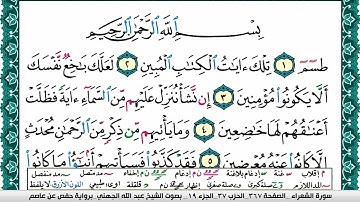 بِسْمِ ٱللَّهِ ٱلرَّحْمَٰنِ ٱلرَّحِيمِ
طسٓمٓ ١ تِلْكَ ءَايَٰتُ ٱلْكِتَٰبِ ٱلْمُبِينِ ٢ لَعَلَّكَ بَٰخِعٌ نَّفْسَكَ
أَلَّا يَكُونُوا۟ مُؤْمِنِينَ ٣ إِن نَّشَأْ نُنَزِّلْ عَلَيْهِم مِّنَ ٱلسَّمَآءِ ءَايَةً فَظَلَّتْ
أَعْنَٰقُهُمْ لَهَا خَٰضِعِينَ ٤ وَمَا يَأْتِيهِم مِّن ذِكْرٍ مِّنَ ٱلرَّحْمَٰنِ مُحْدَثٍ
إِلَّا كَانُوا۟ عَنْهُ مُعْرِضِينَ ٥ فَقَدْ كَذَّبُوا۟ فَسَيَأْتِيهِمْ أَنۢبَٰٓؤُا۟ مَا كَانُوا۟
سورة الشعراء . الصفحة ٣٦٧ . الحزب ٣٧ . الجزء ١٩ . بصوت الشيخ عبد الله الجهني . برواية حفص عن عاصم